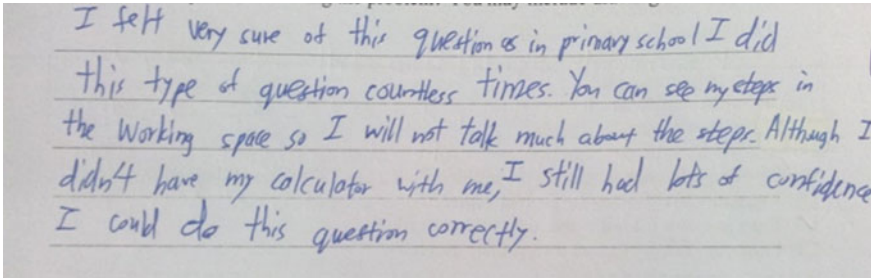 I felt very sure of this question as in primary school I did
this type of question countless times. You can see my steps in
the working space so I will not talk much about the steps. Although I
didn't have my calculator with me, I still had lots of confidence
I could do this question correctly.